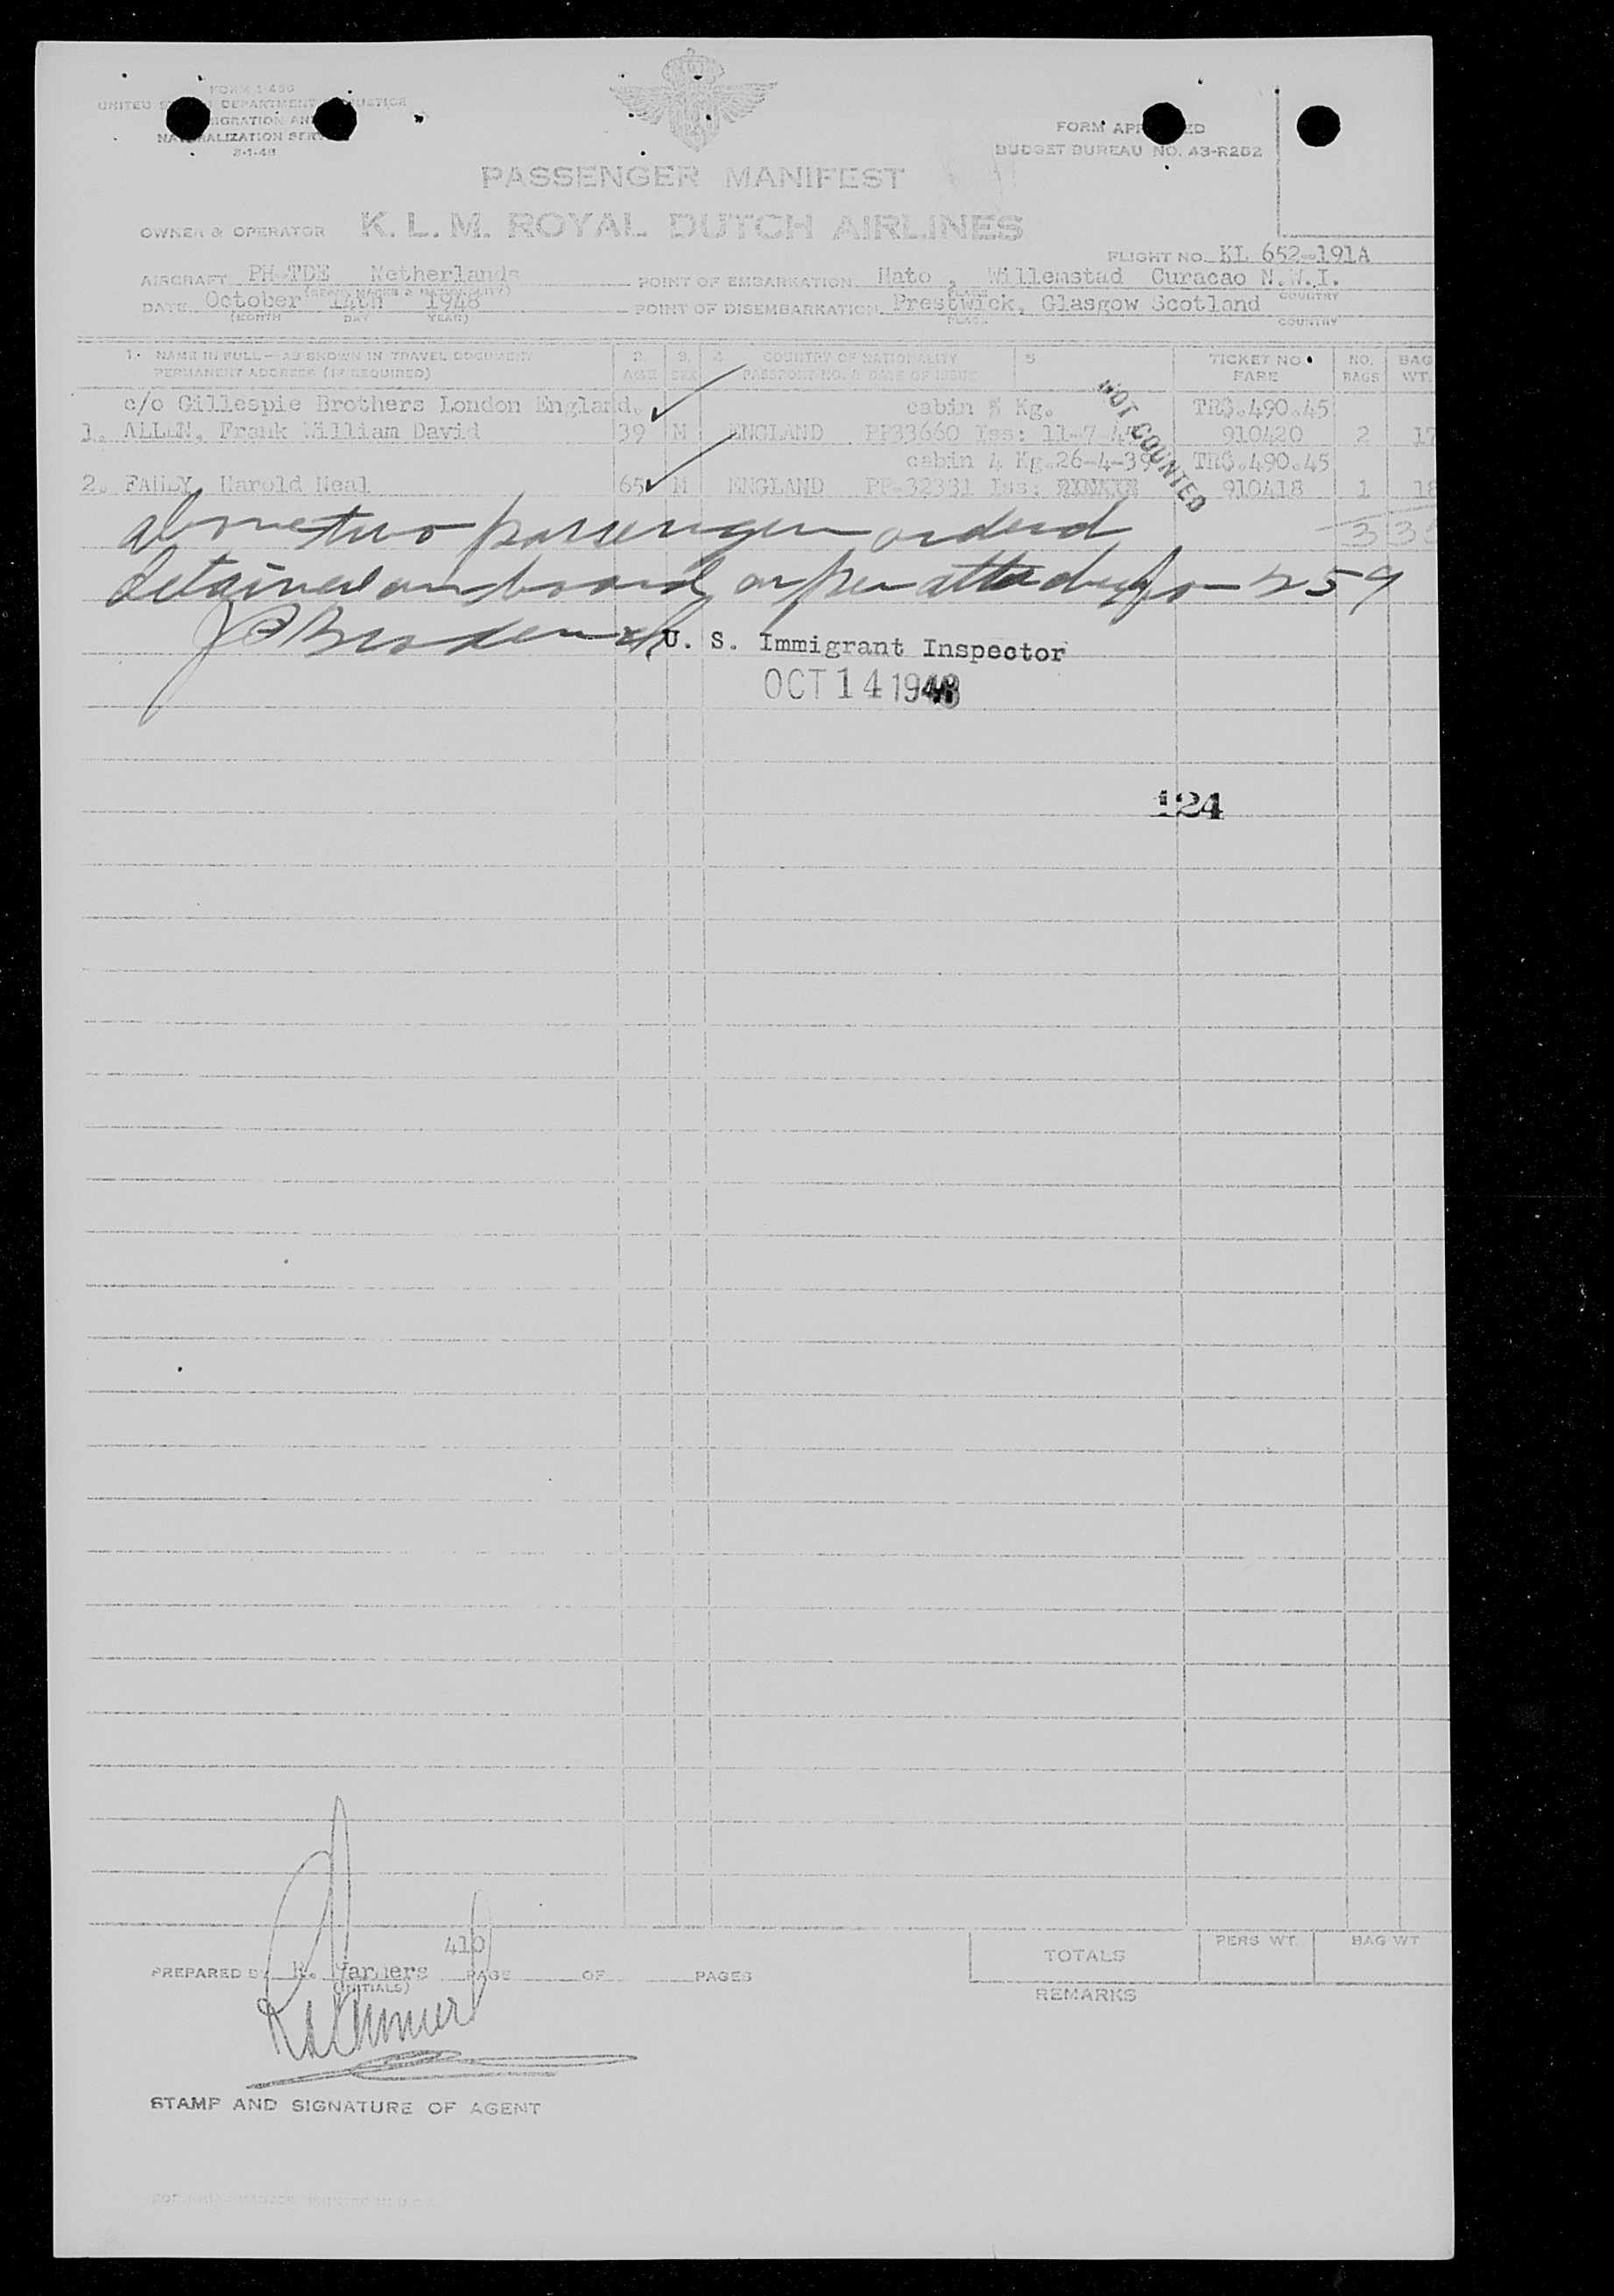 FORM I-450
UNITED DEPARTMENT JUSTICE
IGRATION AN
NA RALIZATION SER
2-1-48
FORM APP ED
BUDGET BUREAU NO. 43-R252
PASSENGER MANIFEST
OWNER & OPERATOR K.L.M. ROYAL DUTCH AIRLINES
FLIGHT NO. KL 652-191A
AIRCRAFT PH-TDE Netherlands POINT OF EMBARKATION Hato , Willemstad Curacao N.W.I.
PLACE COUNTRY
DATE October 14th 1948 POINT OF DISEMBARKATION Prestwick, Glasgow Scotland
(MONTH DAY YEAR) PLACE COUNTRY
1. NAME IN FULL—AS SHOWN IN TRAVEL DOCUMENT 2. 3. 4 COUNTRY OF NATIONALITY 5 TICKET NO. NO. BAG
PERMANENT ADDRESS (IF REQUIRED) AGE SEX PASSPORT NO. & DATE OF ISSUE FARE BAGS WT.
c/o Gillespie Brothers London England. cabin Kg. TR$.490.45
1. ALLEN, Frank William David 39 M ENGLAND PP33660 Iss: 11-7-4 910420 2 17
NOT COUNTED
cabin 4 Kg. 26-4-39 TR$.490.45
2. Harold Neal 65 M ENGLAND PP-32331 Iss: 910418 1 18
above two passengers ordered 3 35
detained on board as per attached form 259
U. S. Immigrant Inspector
OCT 14 1948
124
410
PREPARED BY PAGE OF PAGES
(INITIALS)
TOTALS PERS WT. BAG WT
REMARKS
STAMP AND SIGNATURE OF AGENT